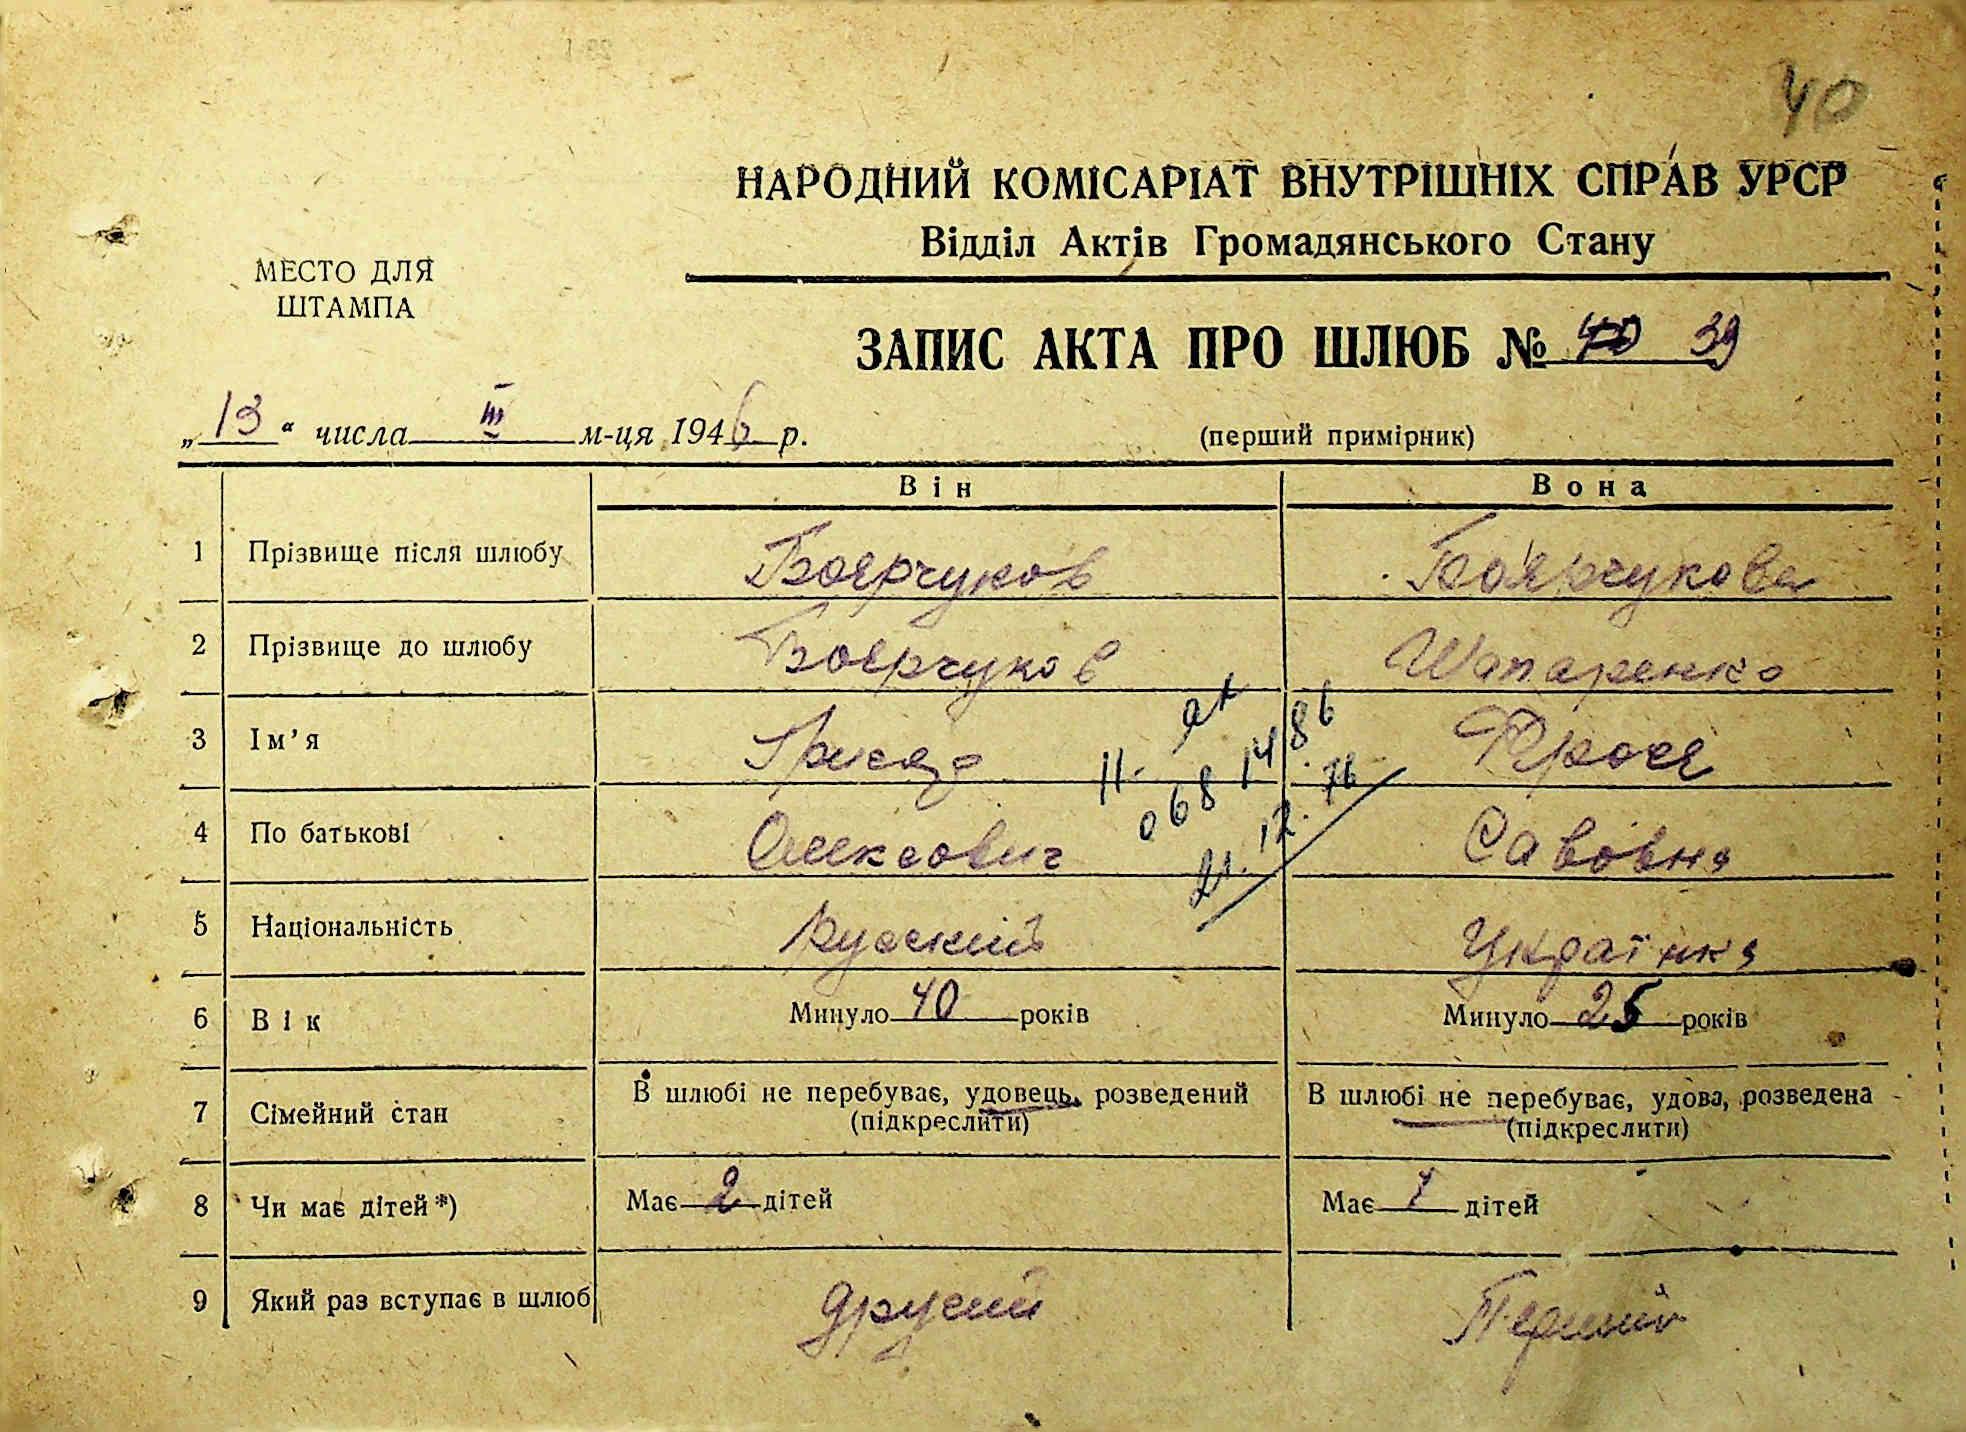 40
НАРОДНИЙ КОМІСАРІАТ ВНУТРІШНІХ СПРАВ УРСР
Відділ Актів Громадянського Стану
МЕСТО ДЛЯ
ШТАМПА
ЗАПИС АКТА ПРО ШЛЮБ № 40 39
„13“ числа III м-ця 1946 р.
(перший примірник)
Він Вона
1 Прізвище після шлюбу Боярчуков Боярчукова
2 Прізвище до шлюбу Боярчуков Шапаренко
3 Ім’я Фрося
4 По батькові Олексович Савовна
5 Національність Руский Українка
6 Вік Минуло 40 років Минуло 25 років
7 Сімейний стан В шлюбі не перебуває, удовець, розведений В шлюбі не перебуває, удова, розведена
(підкреслити) (підкреслити)
8 Чи має дітей*) Має 2 дітей Має 1 дітей
9 Який раз вступає в шлюб другий Перший
11- 068 1486
21.12.76